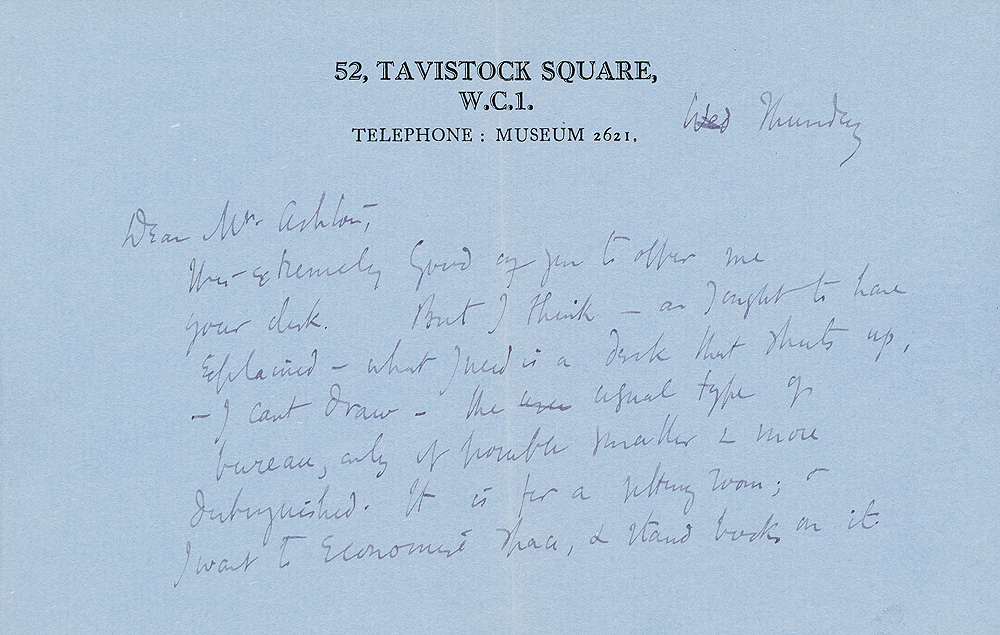 52, TAVISTOCK SQUARE,
W.C.1.
TELEPHONE : MUSEUM 2621.
Wed Thursday
Dear Mr. Ashton,
extremely good of you to offer me
your desk. But I think – as I ought to have
explained – what I need is a desk that shuts up,
– I cant draw – the usual type of
bureau, only if possible smaller & more
distinguished. It is for a sitting room; &
I want to economise space, & stand books on it.